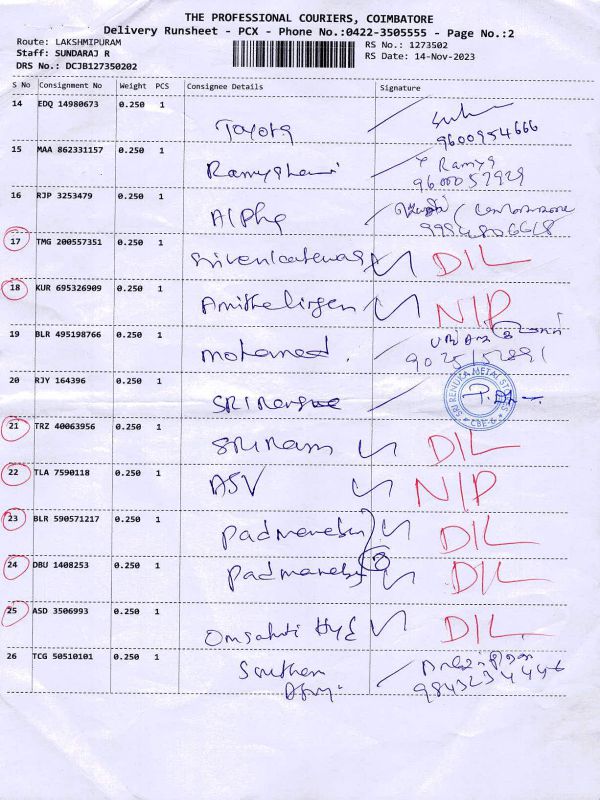 THE PROFESSIONAL COURIERS, COIMBATORE
Delivery Runsheet - PCX - Phone No.:0422-3505555 - Page No.:2
Route: LAKSHMIPURAM RS No.: 1273502
Staff: SUNDARAJ R RS Date: 14-Nov-2023
DRS No.: DCJB127350202
S No Consignment No Weight PCS Consignee Details Signature
14 EDQ 14980673 0.250 1
Toyota
9600954666
15 MAA 862331157 0.250 1
Ramya
9600057929
16 RJP 3253479 0.250 1
Alpha
17 TMG 200557351 0.250 1
DIL
18 KUR 695326909 0.250 1
NIP
19 BLR 495198766 0.250 1
mohamed
20 RJY 164396 0.250 1
SRI RENUKA METAL
CBE-6
21 TRZ 40063956 0.250 1
SRIRAM DIL
22 TLA 7590118 0.250 1
ASV NIP
23 BLR 590571217 0.250 1
DIL
24 DBU 1408253 0.250 1
DIL
25 ASD 3506993 0.250 1
DIL
26 TCG 50510101 0.250 1
Southern